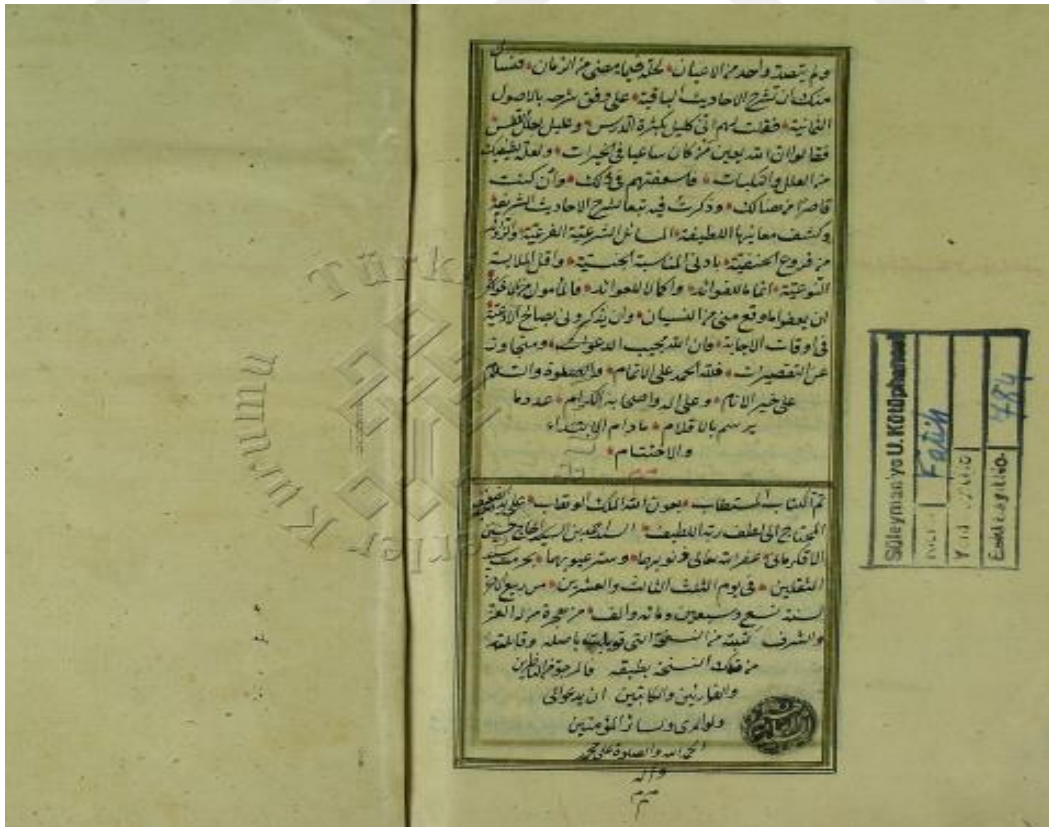 ولم يتصد واحد من الاعيان لحله فيما مضى من الزمان
منك ان تشرح الاحاديث الباقية على وفق شرحه بالاصول
الثمانية فقلت لهم انى كليل بكثرة الدرس وعليل بعلل
فقالوا ان الله يعين من كان ساعيا فى الخيرات ولعل
من العلل والبليات فاسعفتهم فى ذلك وان كنت
قاصرا من هنالك وذكرت فيه تبعا لشرح الاحاديث الشريفة
وكشف معانيها اللطيفة المسائل الشرعية الفرعية
من فروع الحنفية بادنى المناسبة الجنسية واقل الملابسة
النوعية اتماما للفوائد واكمالا للعوائد فالمأمول من
ان يعفوا ما وقع منى من النسيان وان يذكرونى بصالح الادعية
فى اوقات الاجابة فان الله مجيب الدعوات ومتجاوز
عن التقصيرات فلله الحمد على الاتمام والصلوة والسلام
على خير الانام وعلى اله واصحابه الكرام عدد ما
يرسم بالاقلام ما دام الابتداء
والاختتام
تم الكتاب المستطاب بعون الله الملك الوهاب على يد
المحتاج الى لطف ربه اللطيف السيد محمد بن السيد الحاج حسين
غفر الله تعالى ذنوبهما وستر عيوبهما بحرمت سيد
الثقلين فى يوم الثلث الثالث والعشرين من ربيع
لسنة تسع وسبعين ومائه والف من هجرة من له العز
والشرف كتبته من النسخة التى قوبلت باصله وقابلته
من تلك النسخة بطبقه فالمرجو من الناظرين
والقارئين والكاتبين ان يدعوالى
ولوالدى ولسائر المؤمنين
الحمد لله والصلوة على محمد
وآله
Süleymaniye U. Kütüphanesi
Fatih
Eski kayıt No.
784
Kurumu